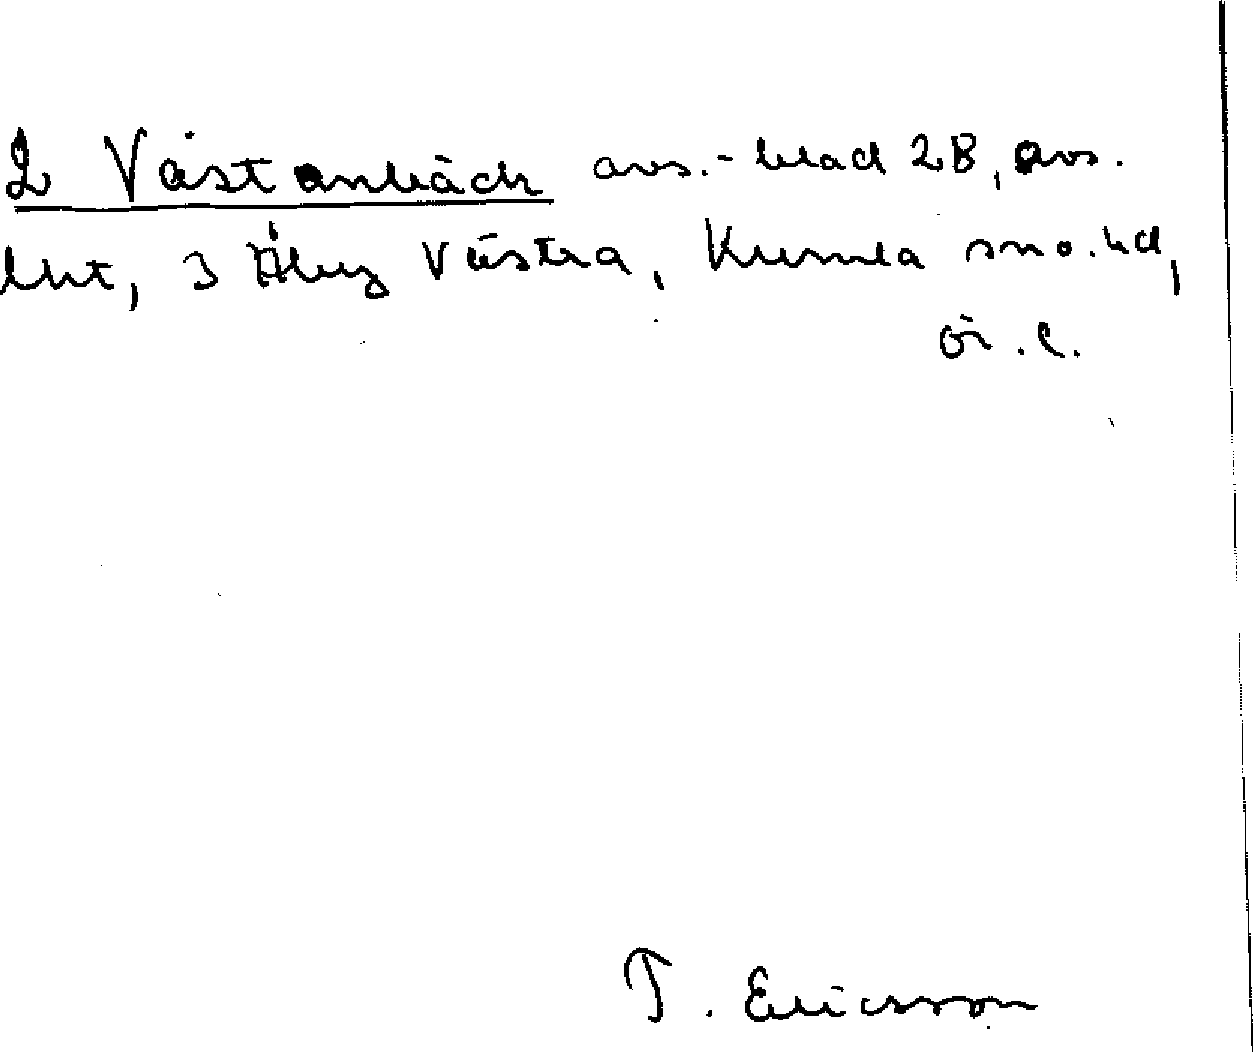 2 Västanbäck avs.-blad 28, avs.
lht, 3 Åby Västra, Kumla sno. hd,
ör. l.
T. Ericsson